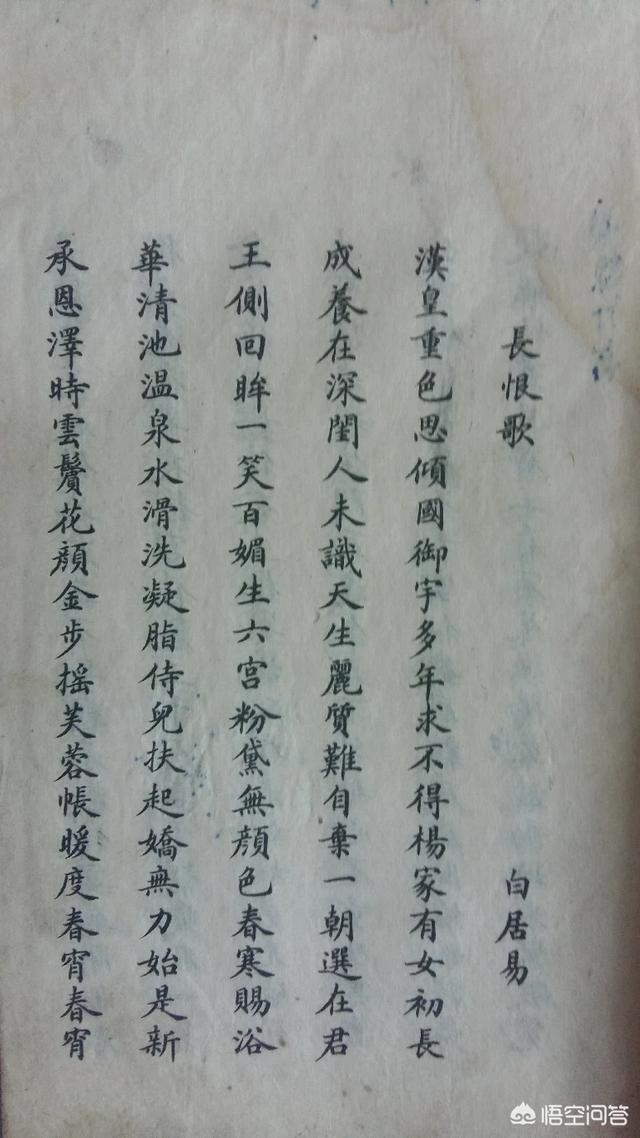 長恨歌 白居易
漢皇重色思傾國御宇多年求不得楊家有女初長
成養在深閨人未識天生麗質難自棄一朝選在君
王側回眸一笑百媚生六宮粉黛無顏色春寒賜浴
華清池温泉水滑洗凝脂侍兒扶起嬌無力始是新
承恩澤時雲鬢花顏金步摇芙蓉帳暖度春宵春宵
悟空问答